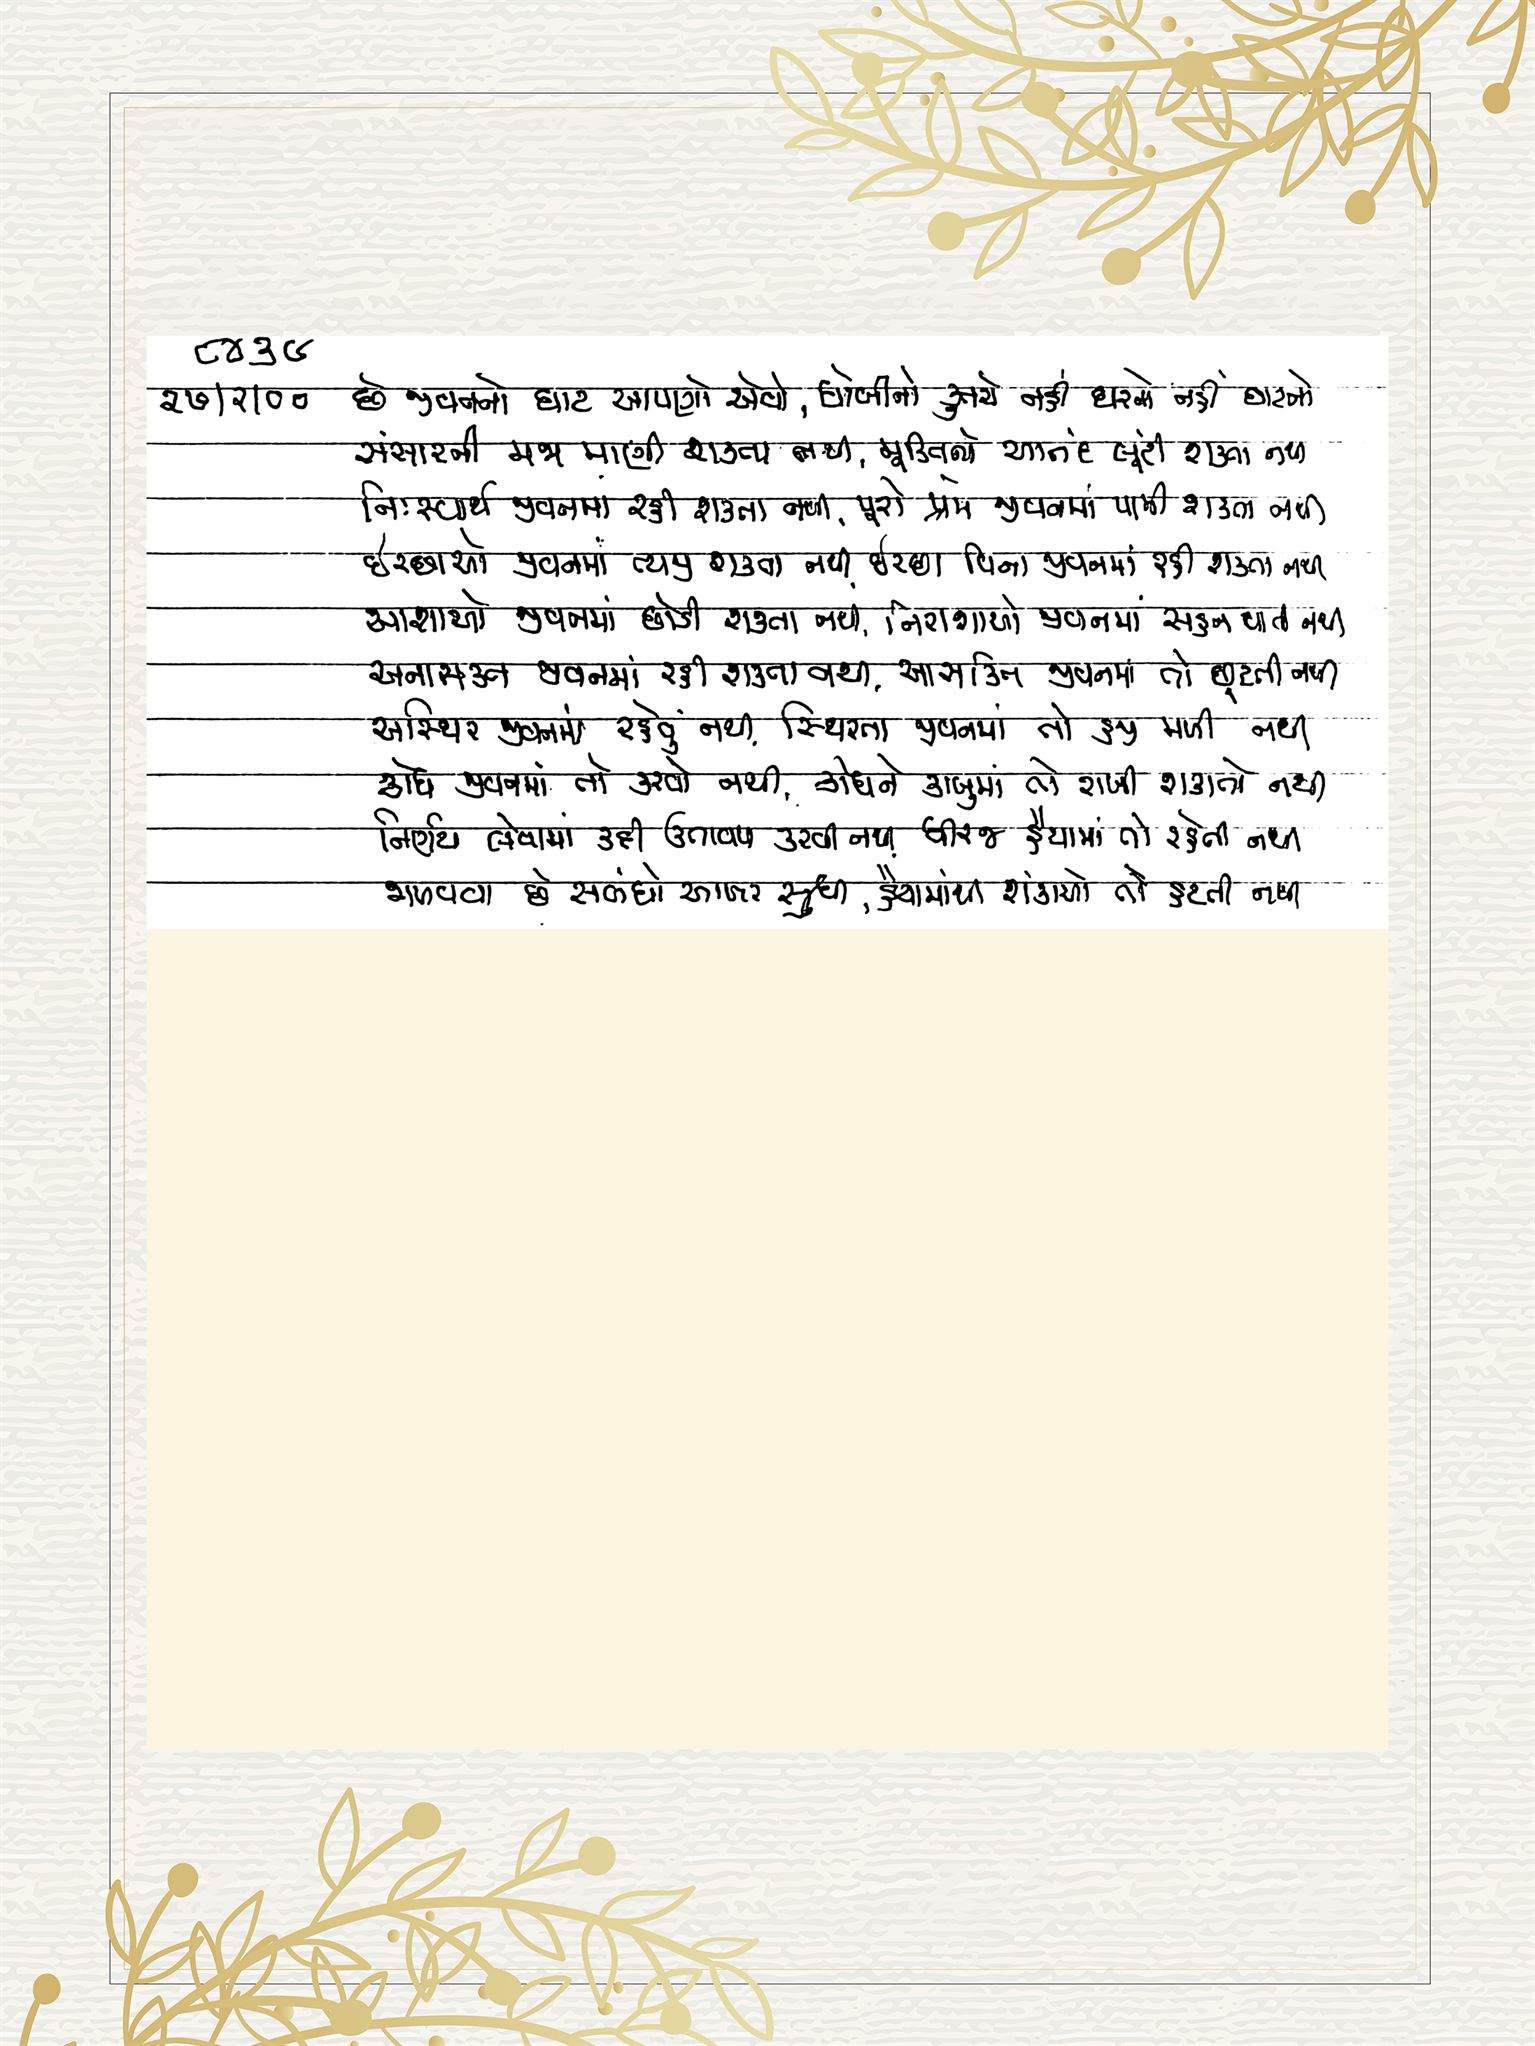 ૮૪૩૯
૨૭/૨/૦૦ છે જીવનનો ઘાટ આપણો એવો, ધોબીનો કુત્તો નહીં ઘરનો નહીં ઘાટનો
સંસારની મજા માણી શકતા નથી, મુક્તિનો આનંદ લૂંટી શકતા નથી
નિઃસ્વાર્થ જીવનમાં રહી શકતા નથી, પૂરો પ્રેમ જીવનમાં પામી શકતા નથી
ઈચ્છાઓ જીવનમાં ત્યજી શકતા નથી, ઈચ્છા વિના જીવનમાં રહી શકતા નથી
આશાઓ જીવનમાં છોડી શકતા નથી, નિરાશાઓ જીવનમાં સહન થાતી નથી
અનાસક્ત જીવનમાં રહી શકતા નથી, આસક્તિ જીવનમાં તો છૂટતી નથી
અસ્થિર જીવનમાં રહેવું નથી, સ્થિરતા જીવનમાં તો હજી મળી નથી
ક્રોધ જીવનમાં તો કરવો નથી, ક્રોધને કાબુમાં તો રાખી શકાતો નથી
નિર્ણય લેવામાં કદી ઉતાવળ કરવી નથી, ધીરજ હૈયામાં તો રહેતી નથી
જાળવવા છે સબંધો આખર સુધી, હૈયામાંથી શંકાઓ તો હટતી નથી